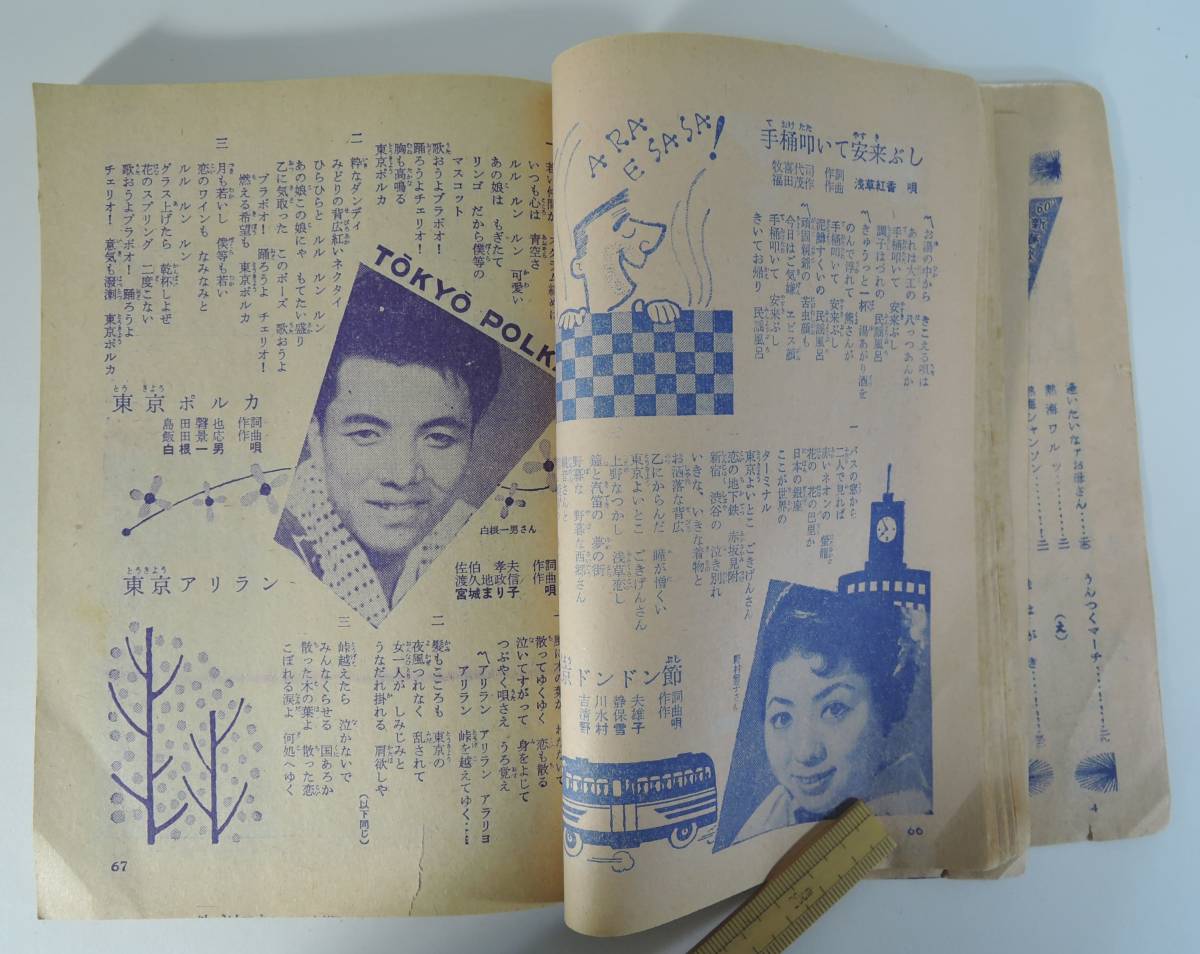 手桶叩いて安来ぶし
牧喜代司 作詞
福田茂 作曲
浅草紅香 唄
ARA
E SASA!
〽お湯の中から きこえる唄は
あれは大工の 八っつあんか
手桶叩いて 安来ぶし
調子はづれの 民謡風呂
〽きゅうっと一杯 湯あがり酒を
のんで浮れて 熊さんが
手桶叩いて 安来ぶし
泥鰌すくいの 民謡風呂
〽頑固親爺の 苦虫顔も
今日はご気嫌 エビス顔
手桶叩いて 安来ぶし
きいてお帰り 民謡風呂
京ドンドン節
吉川静夫 作詞
清水保雄 作曲
野村雪子 唄
一
バスの窓から
二人で見れば
赤いネオンの
花の 花の巴里か
日本の銀座
ここが世界の
ターミナル
東京よいとこ ごきげんさん
恋の地下鉄 赤坂見附
新宿 渋谷の 泣き別れ
いきな、いきな着物と
お洒落な背広
乙にからんだ 瞳が憎くい
東京よいとこ ごきげんさん
上野なつかし 浅草恋し
鐘と汽笛の 夢の街
野暮な 野暮な西郷さん
野村雪子さん
66
TŌKYŌ POLKA
東京ポルカ
島田磬也 作詞
飯田景応 作曲
白根一男 唄
いつも心は 青空さ
ルル ルン ルン 可愛い
あの娘は もぎたて
リンゴ だから僕等の
マスコット
歌おうよブラボオ!
踊ろうよチェリオ!
胸も高鳴る
東京ポルカ
二
粋なダンデイ
みどりの背広紅いネクタイ
ひらひらと ルル ルン ルン
あの娘この娘にゃ もてたい盛り
乙に気取った このポーズ 歌おうよ
ブラボオ! 踊ろうよ チェリオ!
燃える希望も 東京ポルカ
三
月も若いし 僕等も若い
恋のワインも なみなみと
ルル ルン ルン
グラス上げたら 乾杯しよぜ
花のスプリング 二度こない
歌おうよブラボオ! 踊ろうよ
チェリオ! 意気も溌溂 東京ポルカ
白根一男さん
東京アリラン
佐伯孝夫 作詞
渡久地政信 作曲
宮城まり子 唄
一
散ってゆくゆく 恋も散る
泣いてすがって 身をよじて
つぶやく唄さえ うろ覚え
〽アリラン アリラン アラリヨ
アリラン 峠を越えてゆく……
二
髪もこころも 東京の
夜風つれなく 乱されて
女一人が しみじみと
うなだれ掛れる 肩欲しや
(以下同じ)
三
峠越えたら 泣かないで
みんなくらせる 国あろか
散った木の葉よ 散った恋
こぼれる涙よ 何処へゆく
67
逢いたいなァお母さん
熱海ワルツ
熱海シャンソン
うんつくマーチ
4